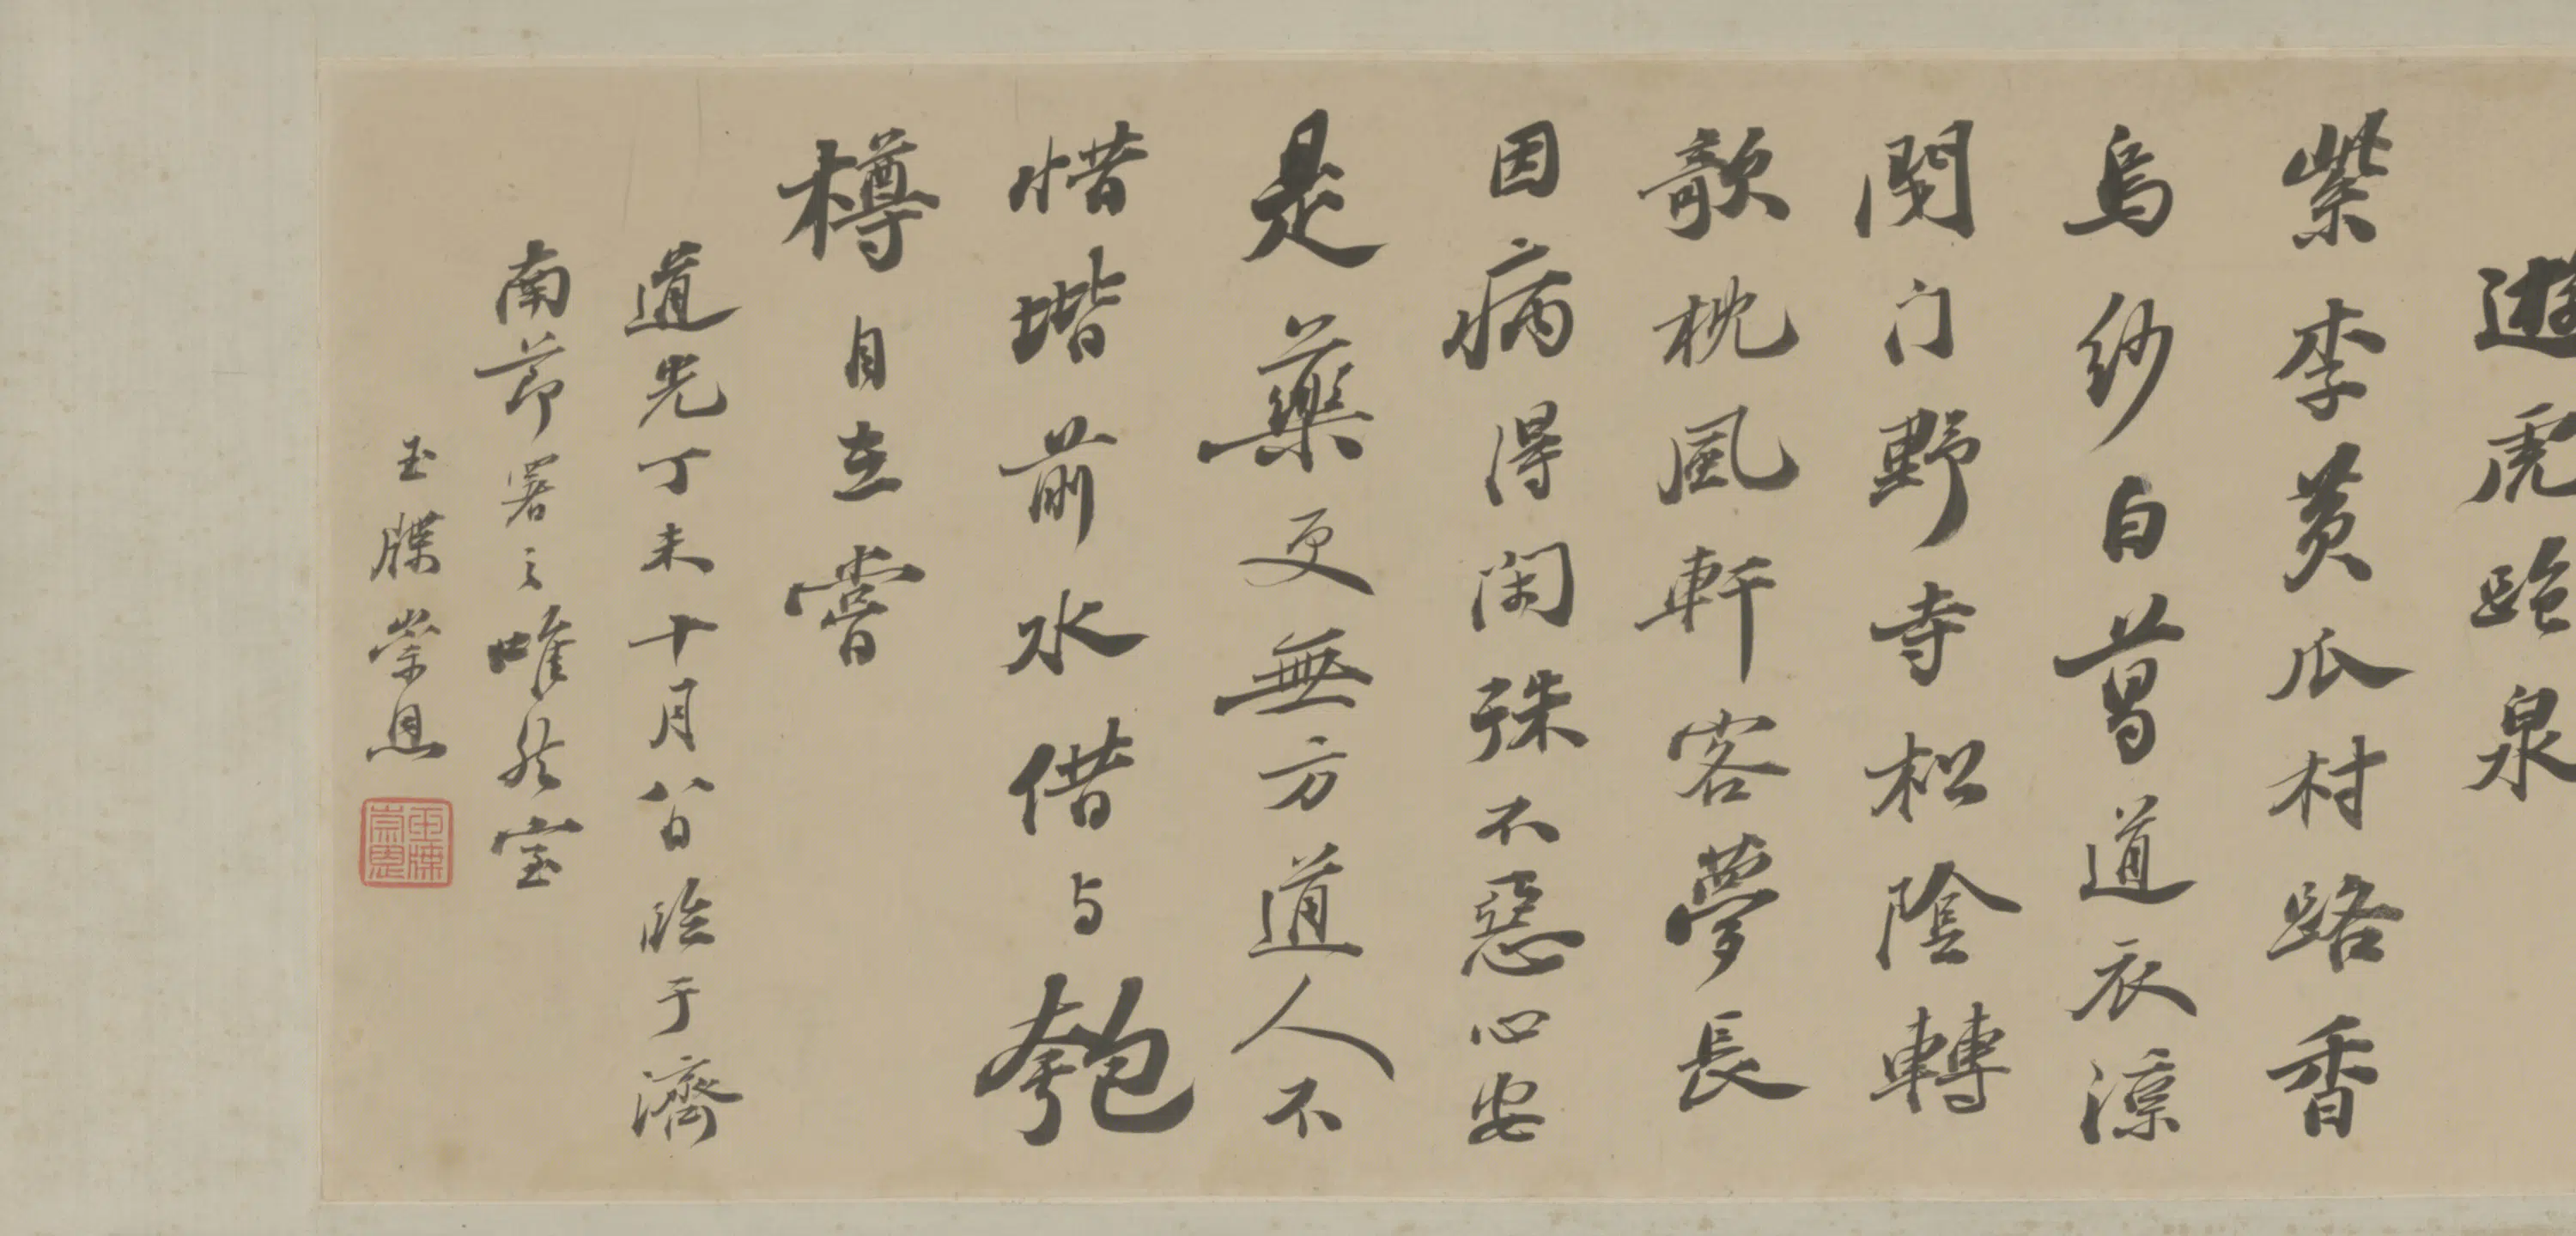 遊虎跑泉
紫李黄瓜村路香
烏紗白葛道衣涼
閉门野寺松陰轉
欹枕風軒客夢長
因病得閑殊不惡心安
是藥更無方道人不
惜堦前水借与匏
樽自在嘗
道光丁未十月八日臨于濟
南節署之唯室
玉牒崇恩
玉牒崇恩